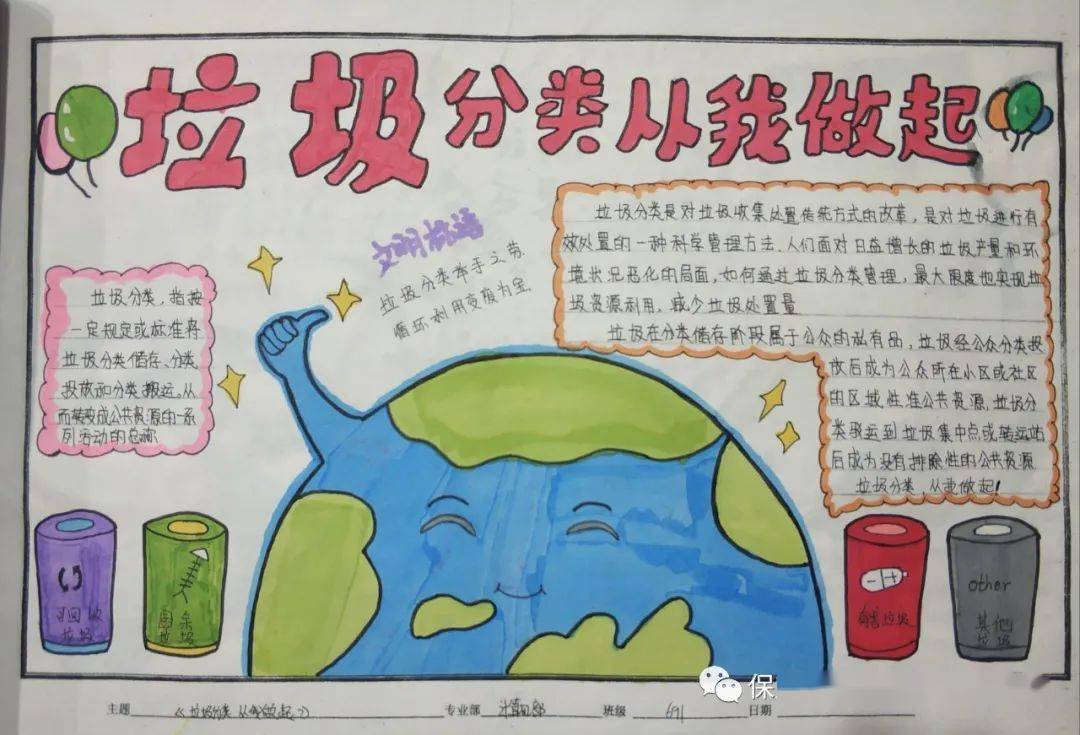 垃圾分类从我做起
文明标语
垃圾分类举手之劳
循环利用变废为宝
垃圾分类是对垃圾收集处置传统方式的改革，是对垃圾进行有
效处置的一种科学管理方法。人们面对日益增长的垃圾产量和环
境状况恶化的局面，如何通过垃圾分类管理，最大限度地实现垃
圾资源利用，减少垃圾处置量
垃圾在分类储存阶段属于公众的私有品，垃圾经公众分类投
放后成为公众所在小区或社区
的区域性准公共资源，垃圾分
类驳运到垃圾集中点或转运站
后成为没有排除性的公共资源
垃圾分类，从我做起！
垃圾分类，指按
一定规定或标准将
垃圾分类储存、分类
投放和分类搬运。从
而转变成公共资源的一系
列活动的总称
可回收
垃圾
厨余
垃圾
有害垃圾
other
其他
垃圾
保
主题 《垃圾分类从我做起》 专业部 班级 691 日期